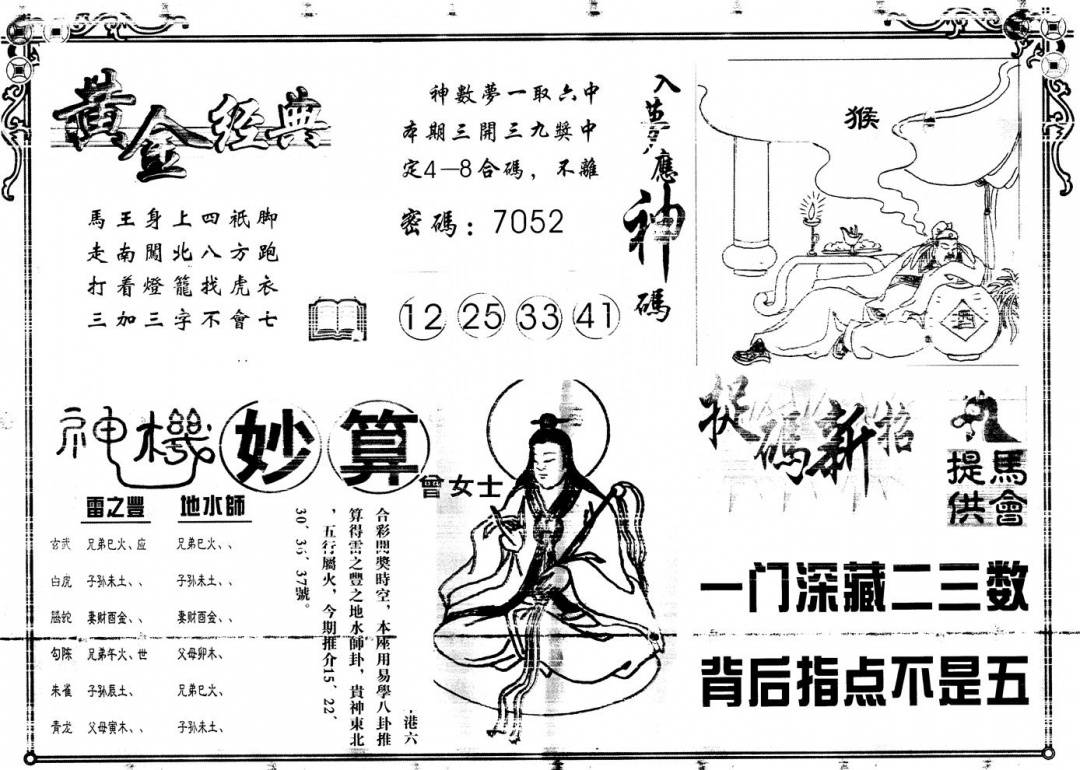 黃金經典
馬王身上四祇脚
走南闖北八方跑
打着燈籠找虎衣
三加三字不會七
神數夢一取六中
本期三開三九獎中
定4—8合碼，不離
密碼：7052
12 25 33 41
入夢應神碼
猴
酒
神機妙算
曾女士
雷之豐 地水師
玄武 兄弟巳火、应 兄弟巳火、、
白虎 子孙未土、、 子孙未土、、
螣蛇 妻财酉金、、 妻财酉金、、
勾陈 兄弟午火、世 父母卯木、
朱雀 子孙辰土、 兄弟巳火、
青龙 父母寅木、、 子孙未土、
港六
合彩開獎時空，本座用易學八卦推
算得雷之豐之地水師卦，貴神東北
，五行屬火，今期推介15、22、
30、36、37號。
捉碼新招
馬會
提供
一门深藏二三数
背后指点不是五